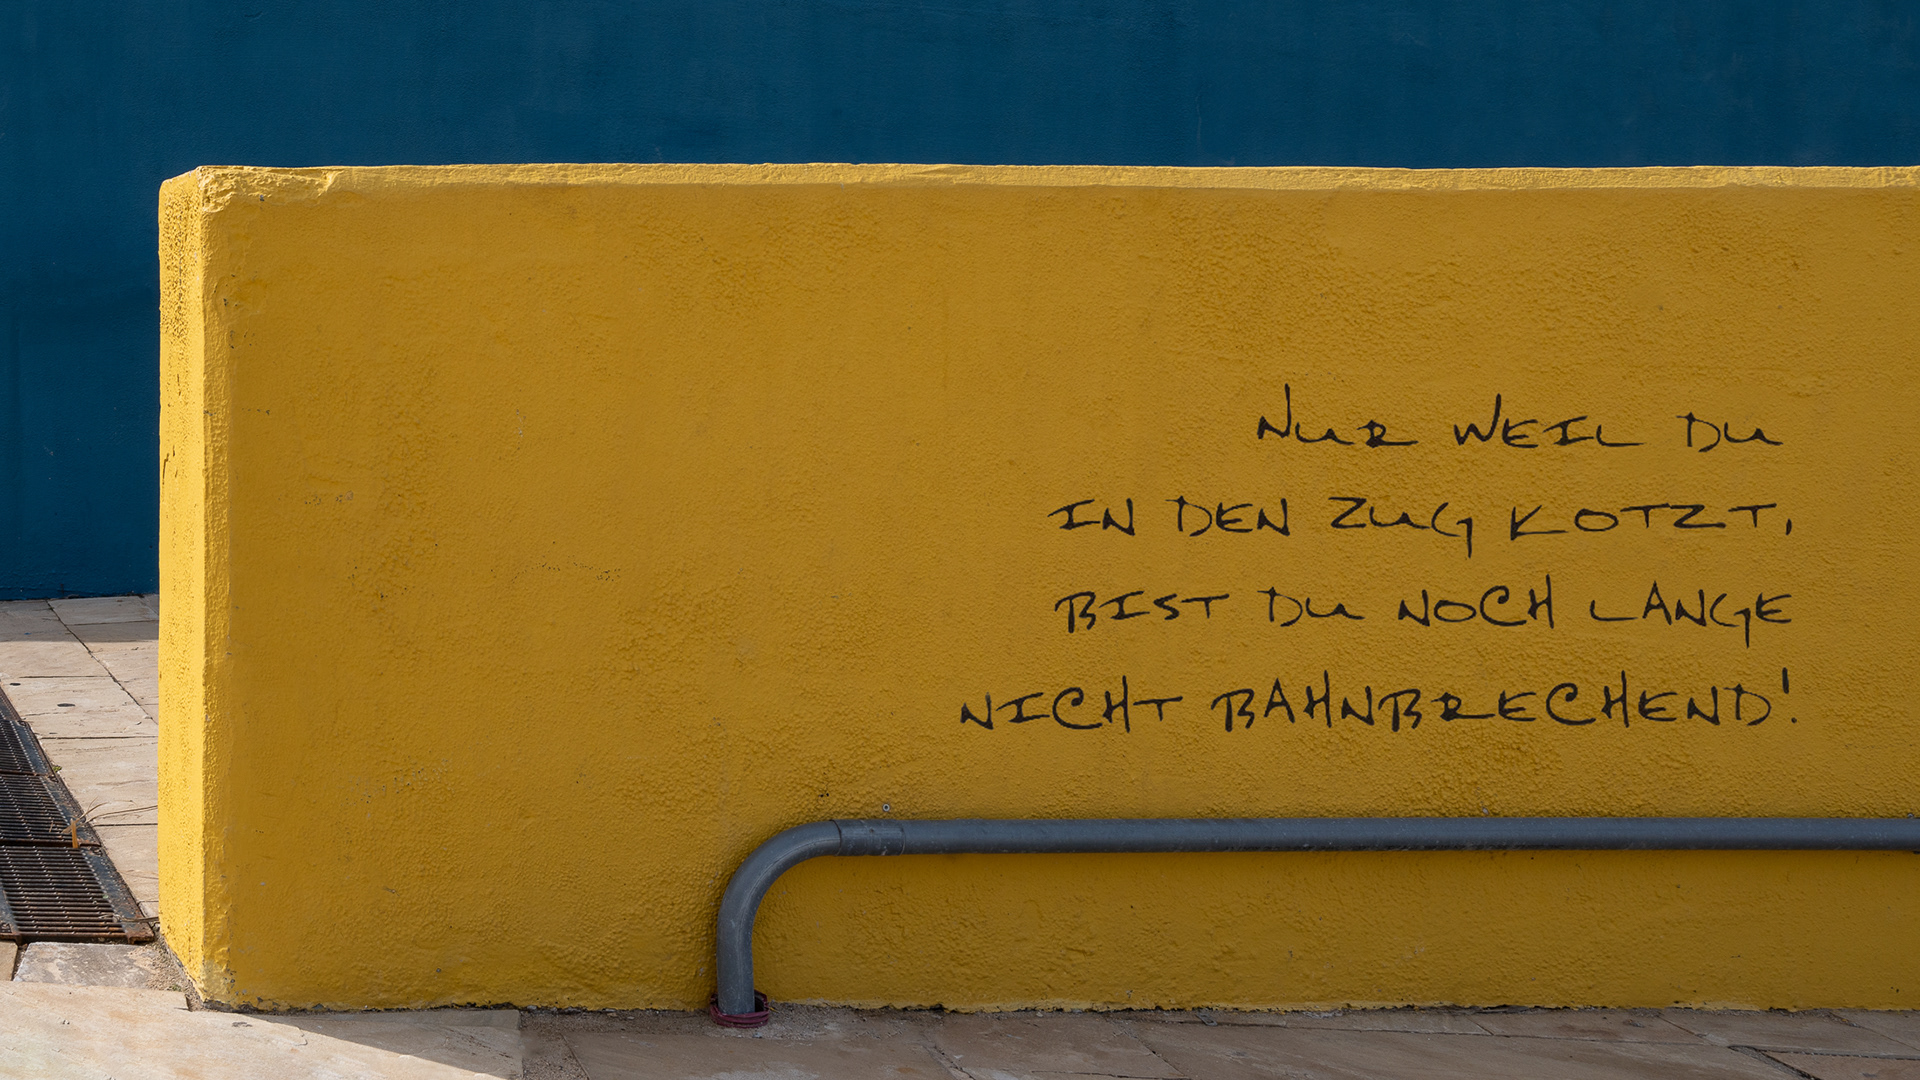 Nur weil Du
in den Zug kotzt,
bist Du noch lange
nicht bahnbrechend!